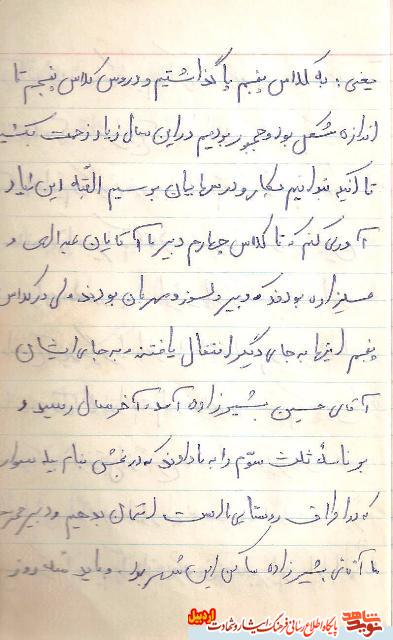 یعنی: به کلاس پنجم پا گذاشتیم و دروس کلاس پنجم تا
اندازه مشکل بود و مجبور بودیم در این سال زیاد زحمت بکشیم
تا آنکه بتوانیم بکار و درسهایمان برسیم البته این را یاد
آوری کنم که تا کلاس چهارم دبیر ما آقایان عبدالهی و
زاده بودند که دبیر دلسوز و مهربان بودند ولی در کلاس
پنجم اینها به جای دیگر انتقال یافتند و به جای ایشان
آقای حسین بشیرزاده آمد، آخر سال رسید و
برنامهٔ ثلث سوّم را به ما دادند که در بخش بنام بیله سوار
که در اطراف روستای ما است امتحان بدهیم و دبیر محترم
ما آقای بشیرزاده ساکن این شهر بود و باید روز
شهید نوید
پایگاه اطلاع رسانی فرهنگ ایثار و شهادت
اردبیل